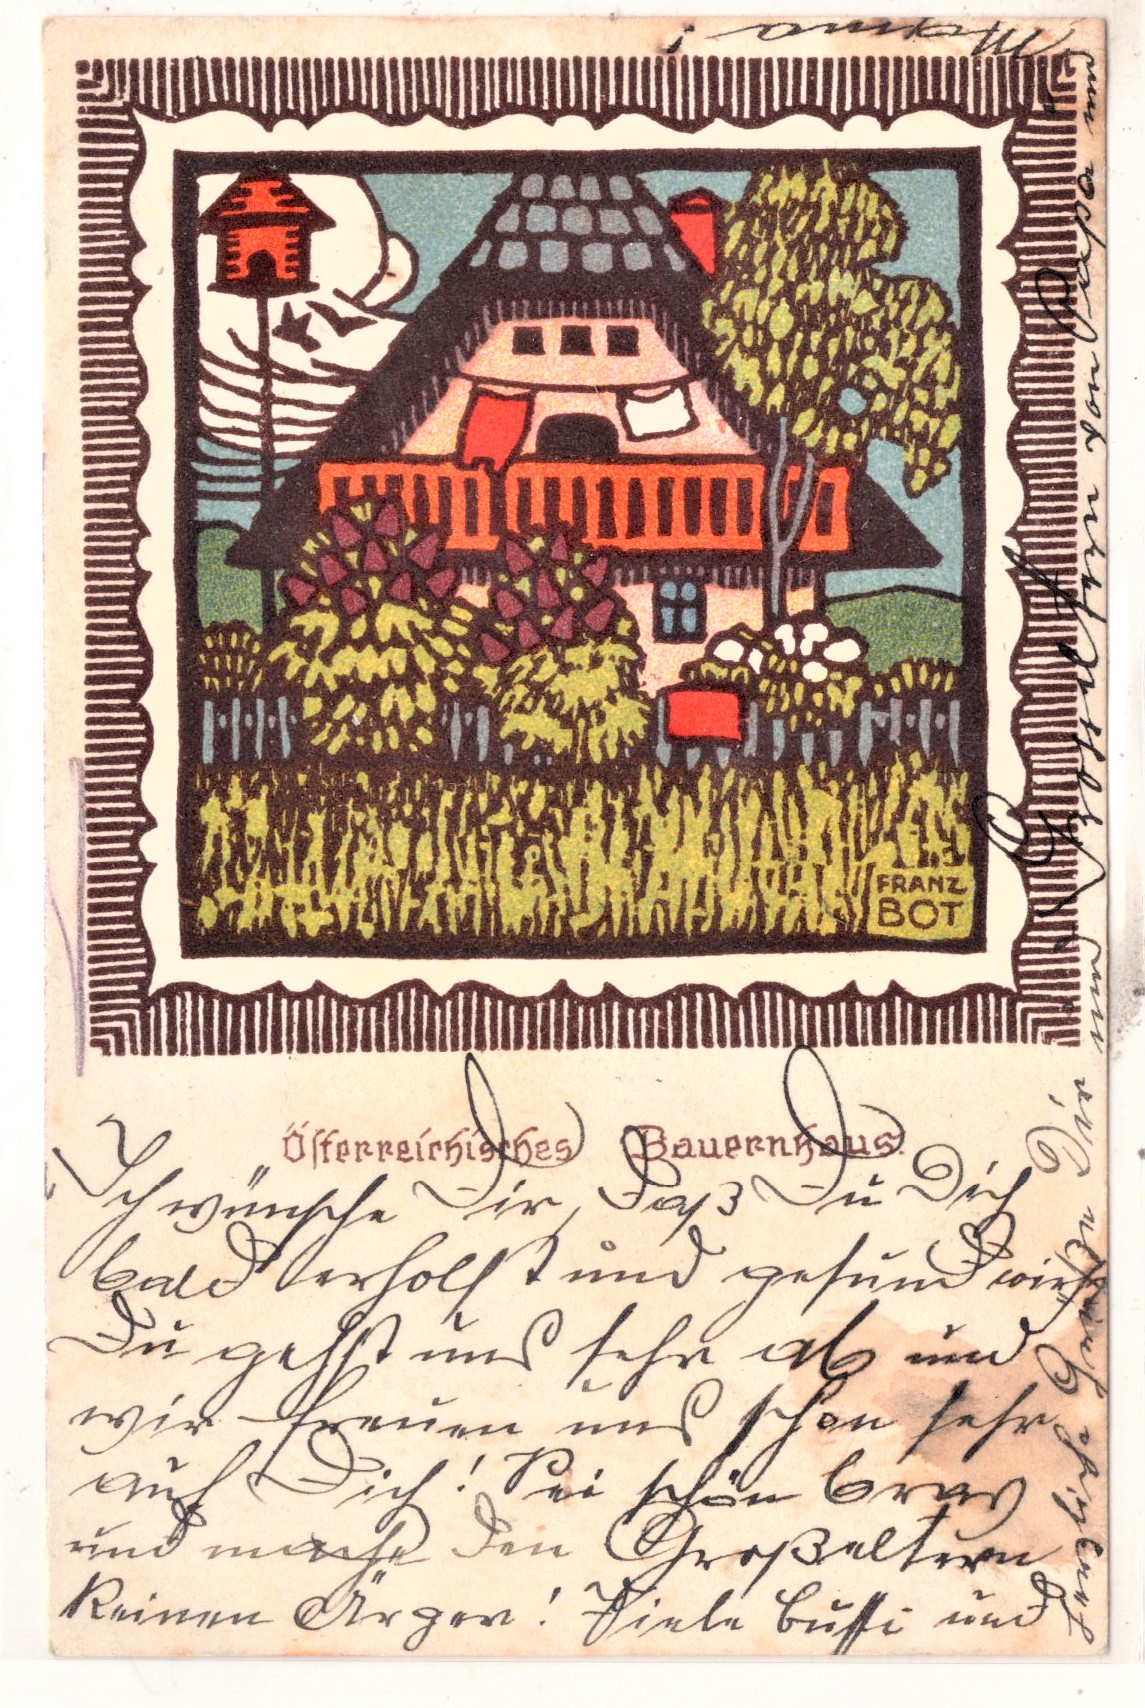 FRANZ
BOT
Österreichisches Bauernhaus.
Ich wünsche Dir, daß Du Dich
bald erholst und gesund wirst
Du gehst uns sehr ab und
wir freuen uns schon sehr
auf Dich! Sei schön brav
und mache den Großeltern
keinen Ärger! Viele Bussi und
herzliche Grüße an Die
Großeltern von Papa und
Mama!